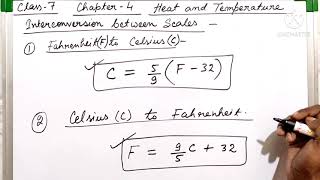 Class-7 Chapter-4 Heat and Temperature
Interconversion between Scales -
① Fahrenheit(F) to Celsius(C)-
C = 5/9 (F - 32)
② Celsius (C) to Fahrenheit.
F = 9/5 C + 32